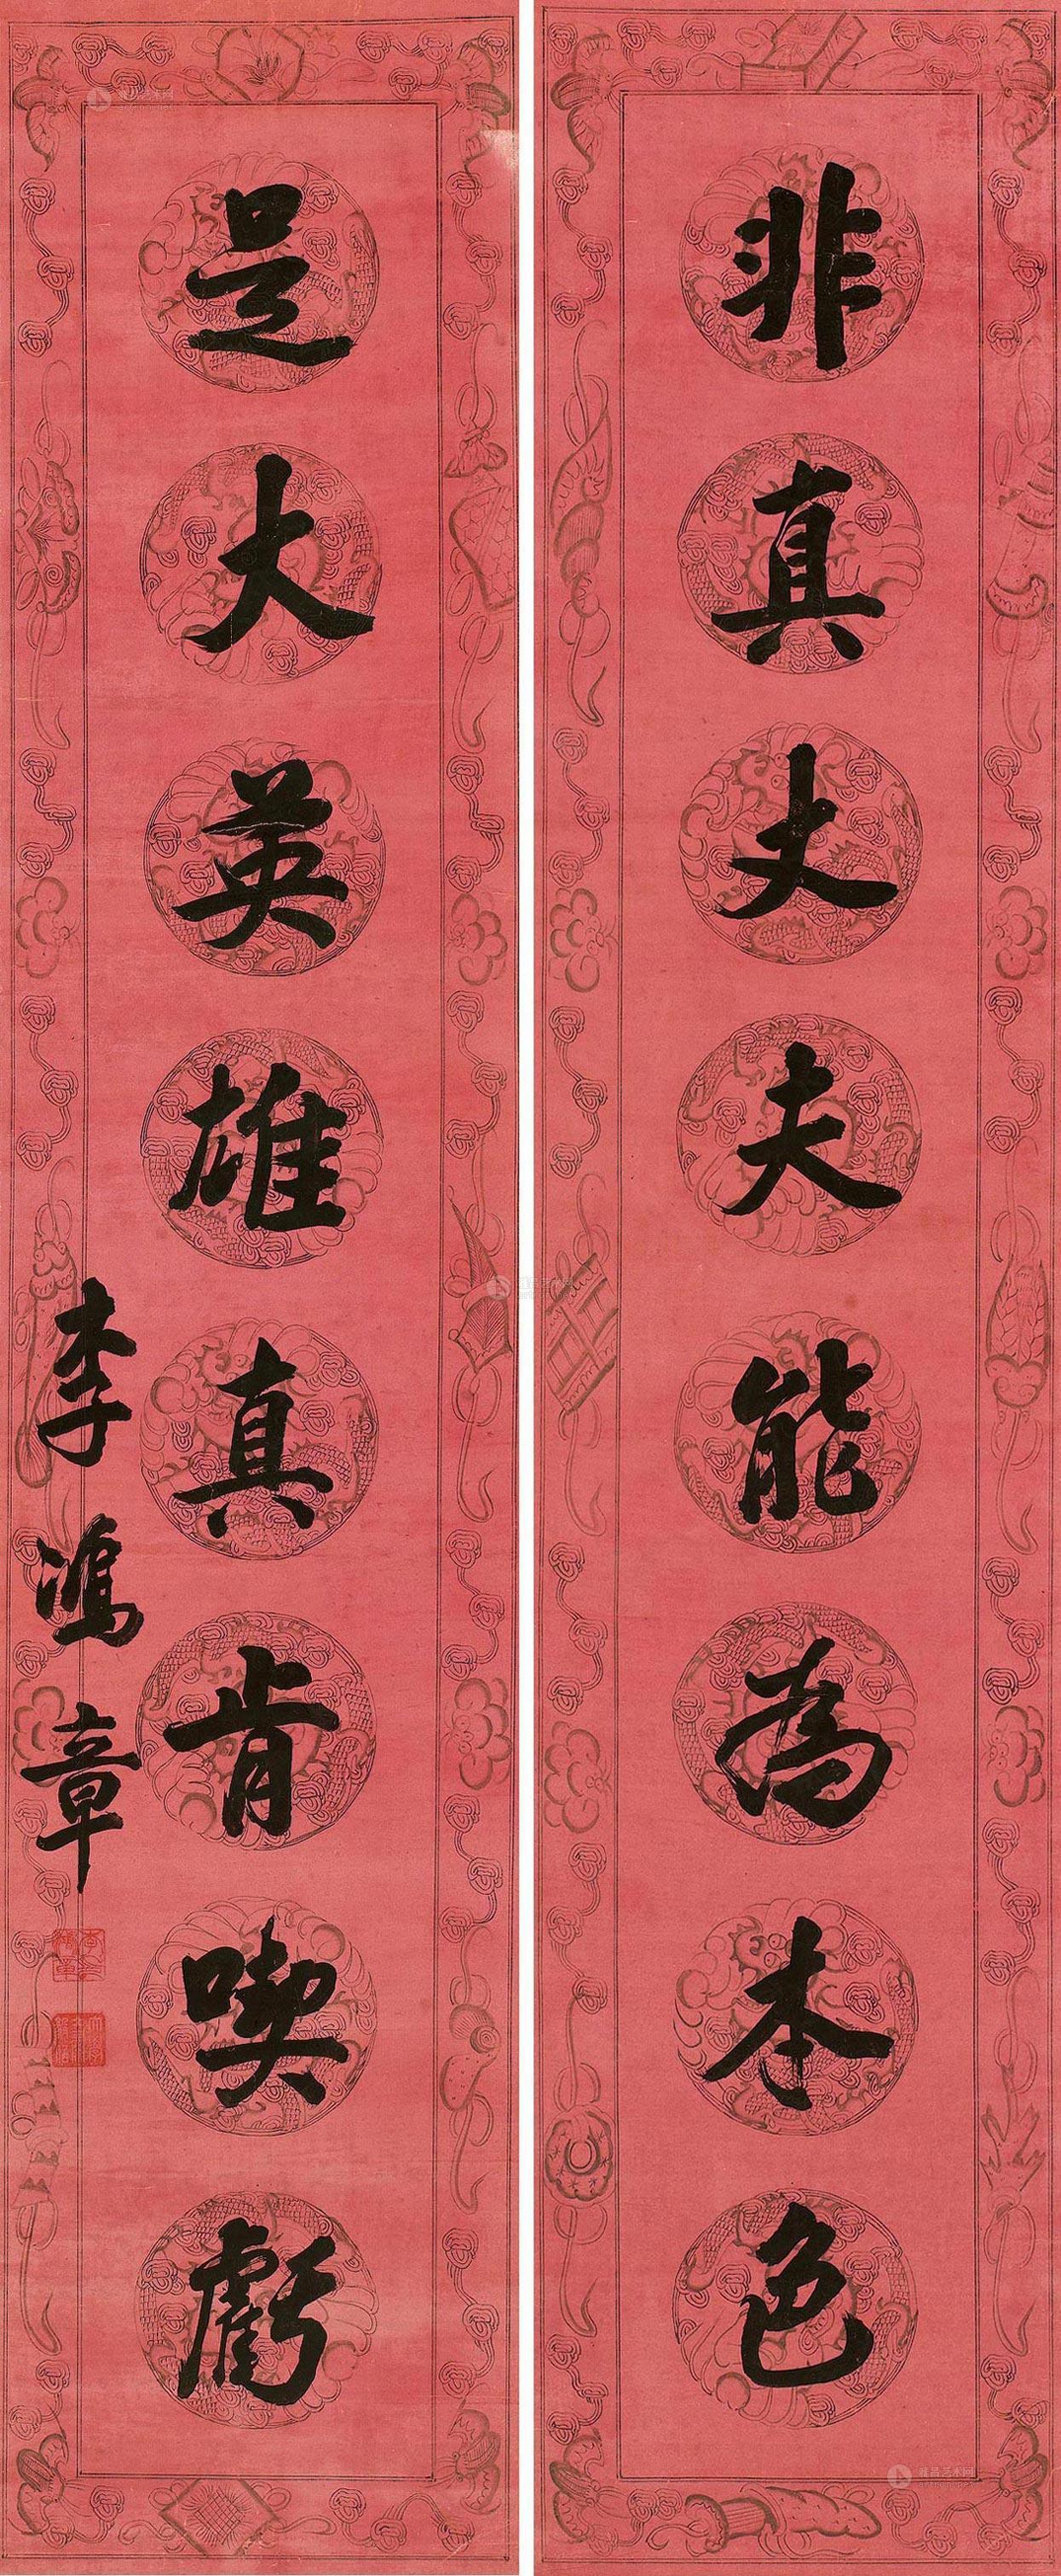 非真丈夫能為本色
是大英雄真肯喫虧
李鴻章